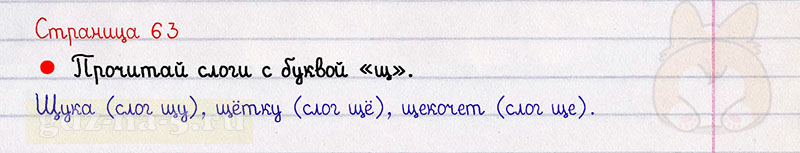 Страница 63
Прочитай слоги с буквой «щ».
Щука (слог щу), щётку (слог щё), щекочет (слог ще).